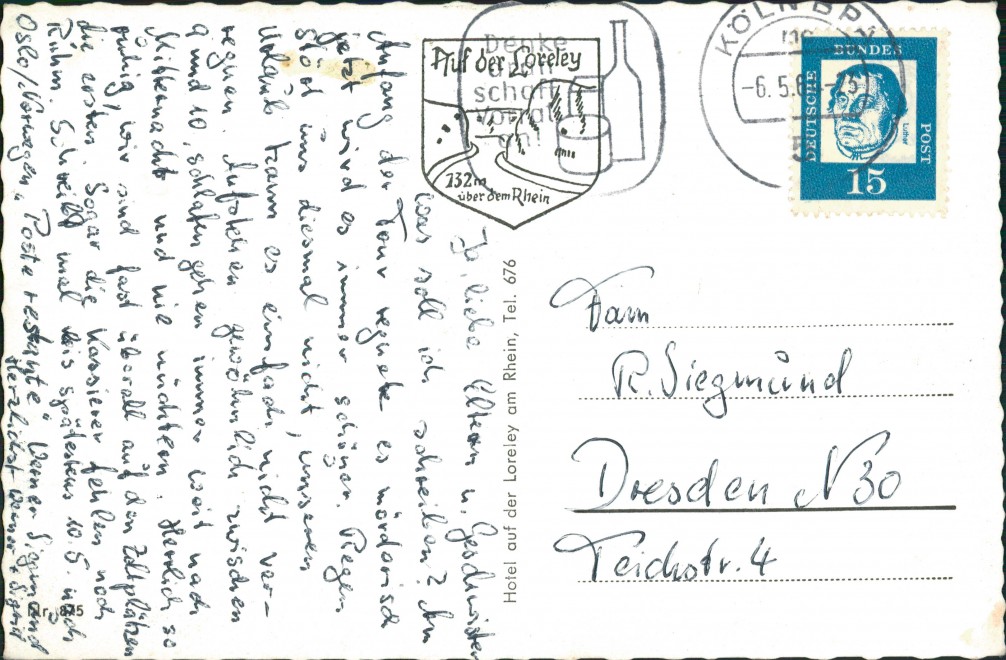 Ja, liebe Eltern u. Geschwister
was soll ich schreiben? Am
Anfang der Tour regnete es mörderisch
jetzt wird es immer schöner. Regen
stört uns diesmal nicht, unseren
Urlaub kann es einfach nicht ver-
regnen. Aufstehen gewöhnlich zwischen
9 und 10, schlafen gehen immer weit nach
Mitternacht und nie nüchtern. Herrlich so
ruhig, wir sind fast überall auf den Zeltplätzen
die ersten. Sogar die Kassierer fehlen noch
Rühm. Schreibt mal bis spätestens 10.5. nach
Oslo/Norwegen „Poste restante" Werner Sigmund
Herzlichst Werner, Sigrid
Nr. 875
Auf der Loreley
132m
über dem Rhein
Denke
dran
schaff
Vorrat
an!
KÖLN
-6.5.6
DEUTSCHE
BUNDES
POST
Luther
15
Hotel auf der Loreley am Rhein, Tel. 676
Fam
R. Siegmund
Dresden N30
Teichstr. 4